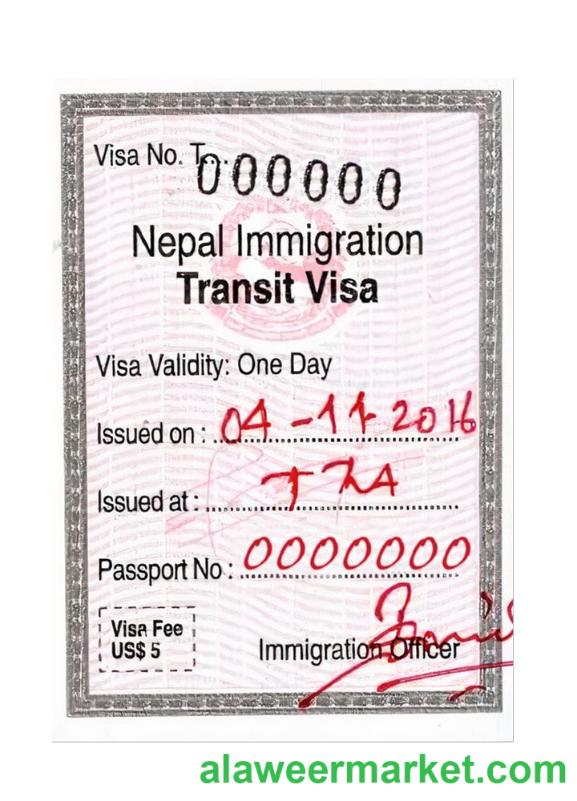 Visa No. T...
000000
Nepal Immigration
Transit Visa
Visa Validity: One Day
Issued on : 04-11 2016
Issued at : TIA
Passport No : 0000000
Visa Fee
US$ 5
Immigration Officer
alaweermarket.com